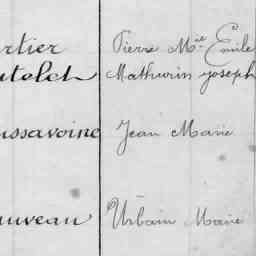 rtier Pierre Mie Emile
telet Mathurin Joseph
ussavoine Jean Marie
auveau Urbain Marie